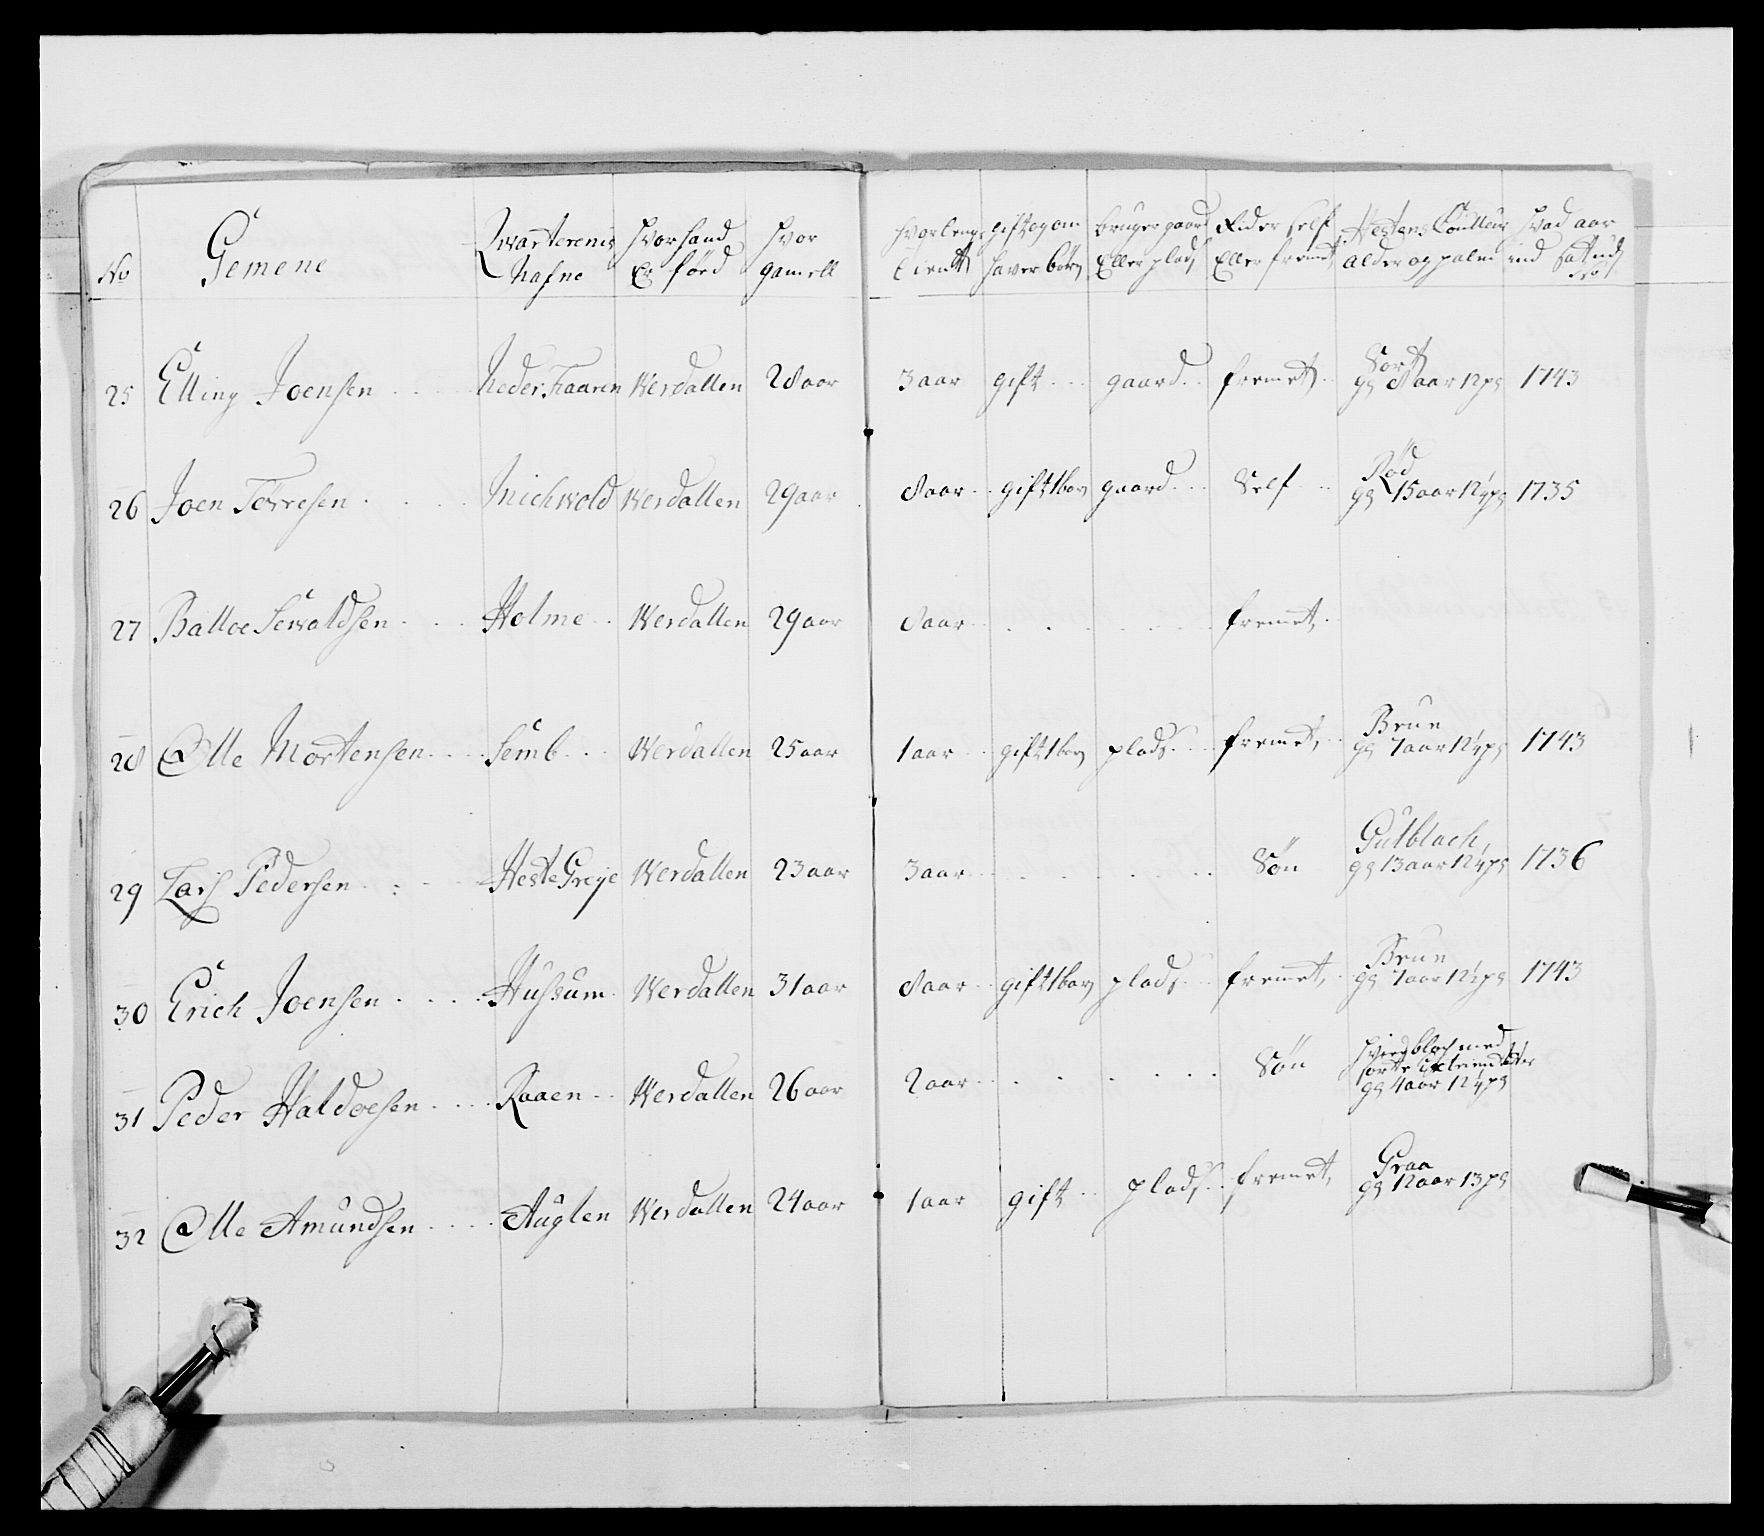 No Gemene Qwarterenis Nafne Hvor hand Er föed Hvor gamell Hvor lenge tient gift og om haver börn bruger gaard Eller plads Rider self Eller fremet Hestens Coulleur alder og palmi Hvad aar ind satud
25 Elling Joensen Neder Faaren Werdallen 28 aar 3 aar gift gaard fremet Sort gs 8 aar 12 ps 1743
26 Joen Törresen Michwold Werdallen 29 aar 8 aar gift 1 barn gaard Self Röd gs 15 aar 12½ ps 1735
27 Balloe Sewaldsen Holme Werdallen 29 aar 8 aar fremet
28 Olle Mortensen Semb Werdallen 25 aar 1 aar gift 1 barn plads fremet Brun gs 7 aar 12½ ps 1743
29 Lars Pedersen HesteGreye Werdallen 23 aar 3 aar Sön Gulblach gs 13 aar 12½ ps 1736
30 Erich Joensen Hussum Werdallen 31 aar 8 aar gift 1 barn plads fremet Brun gs 7 aar 12½ ps 1743
31 Peder Haldoesen Raaen Werdallen 26 aar 2 aar Sön blach med sorte gs 4 aar 12½ ps
32 Olle Amundsen Auglen Werdallen 24 aar 1 aar gift plads fremet Graa gs 12 aar 13 ps